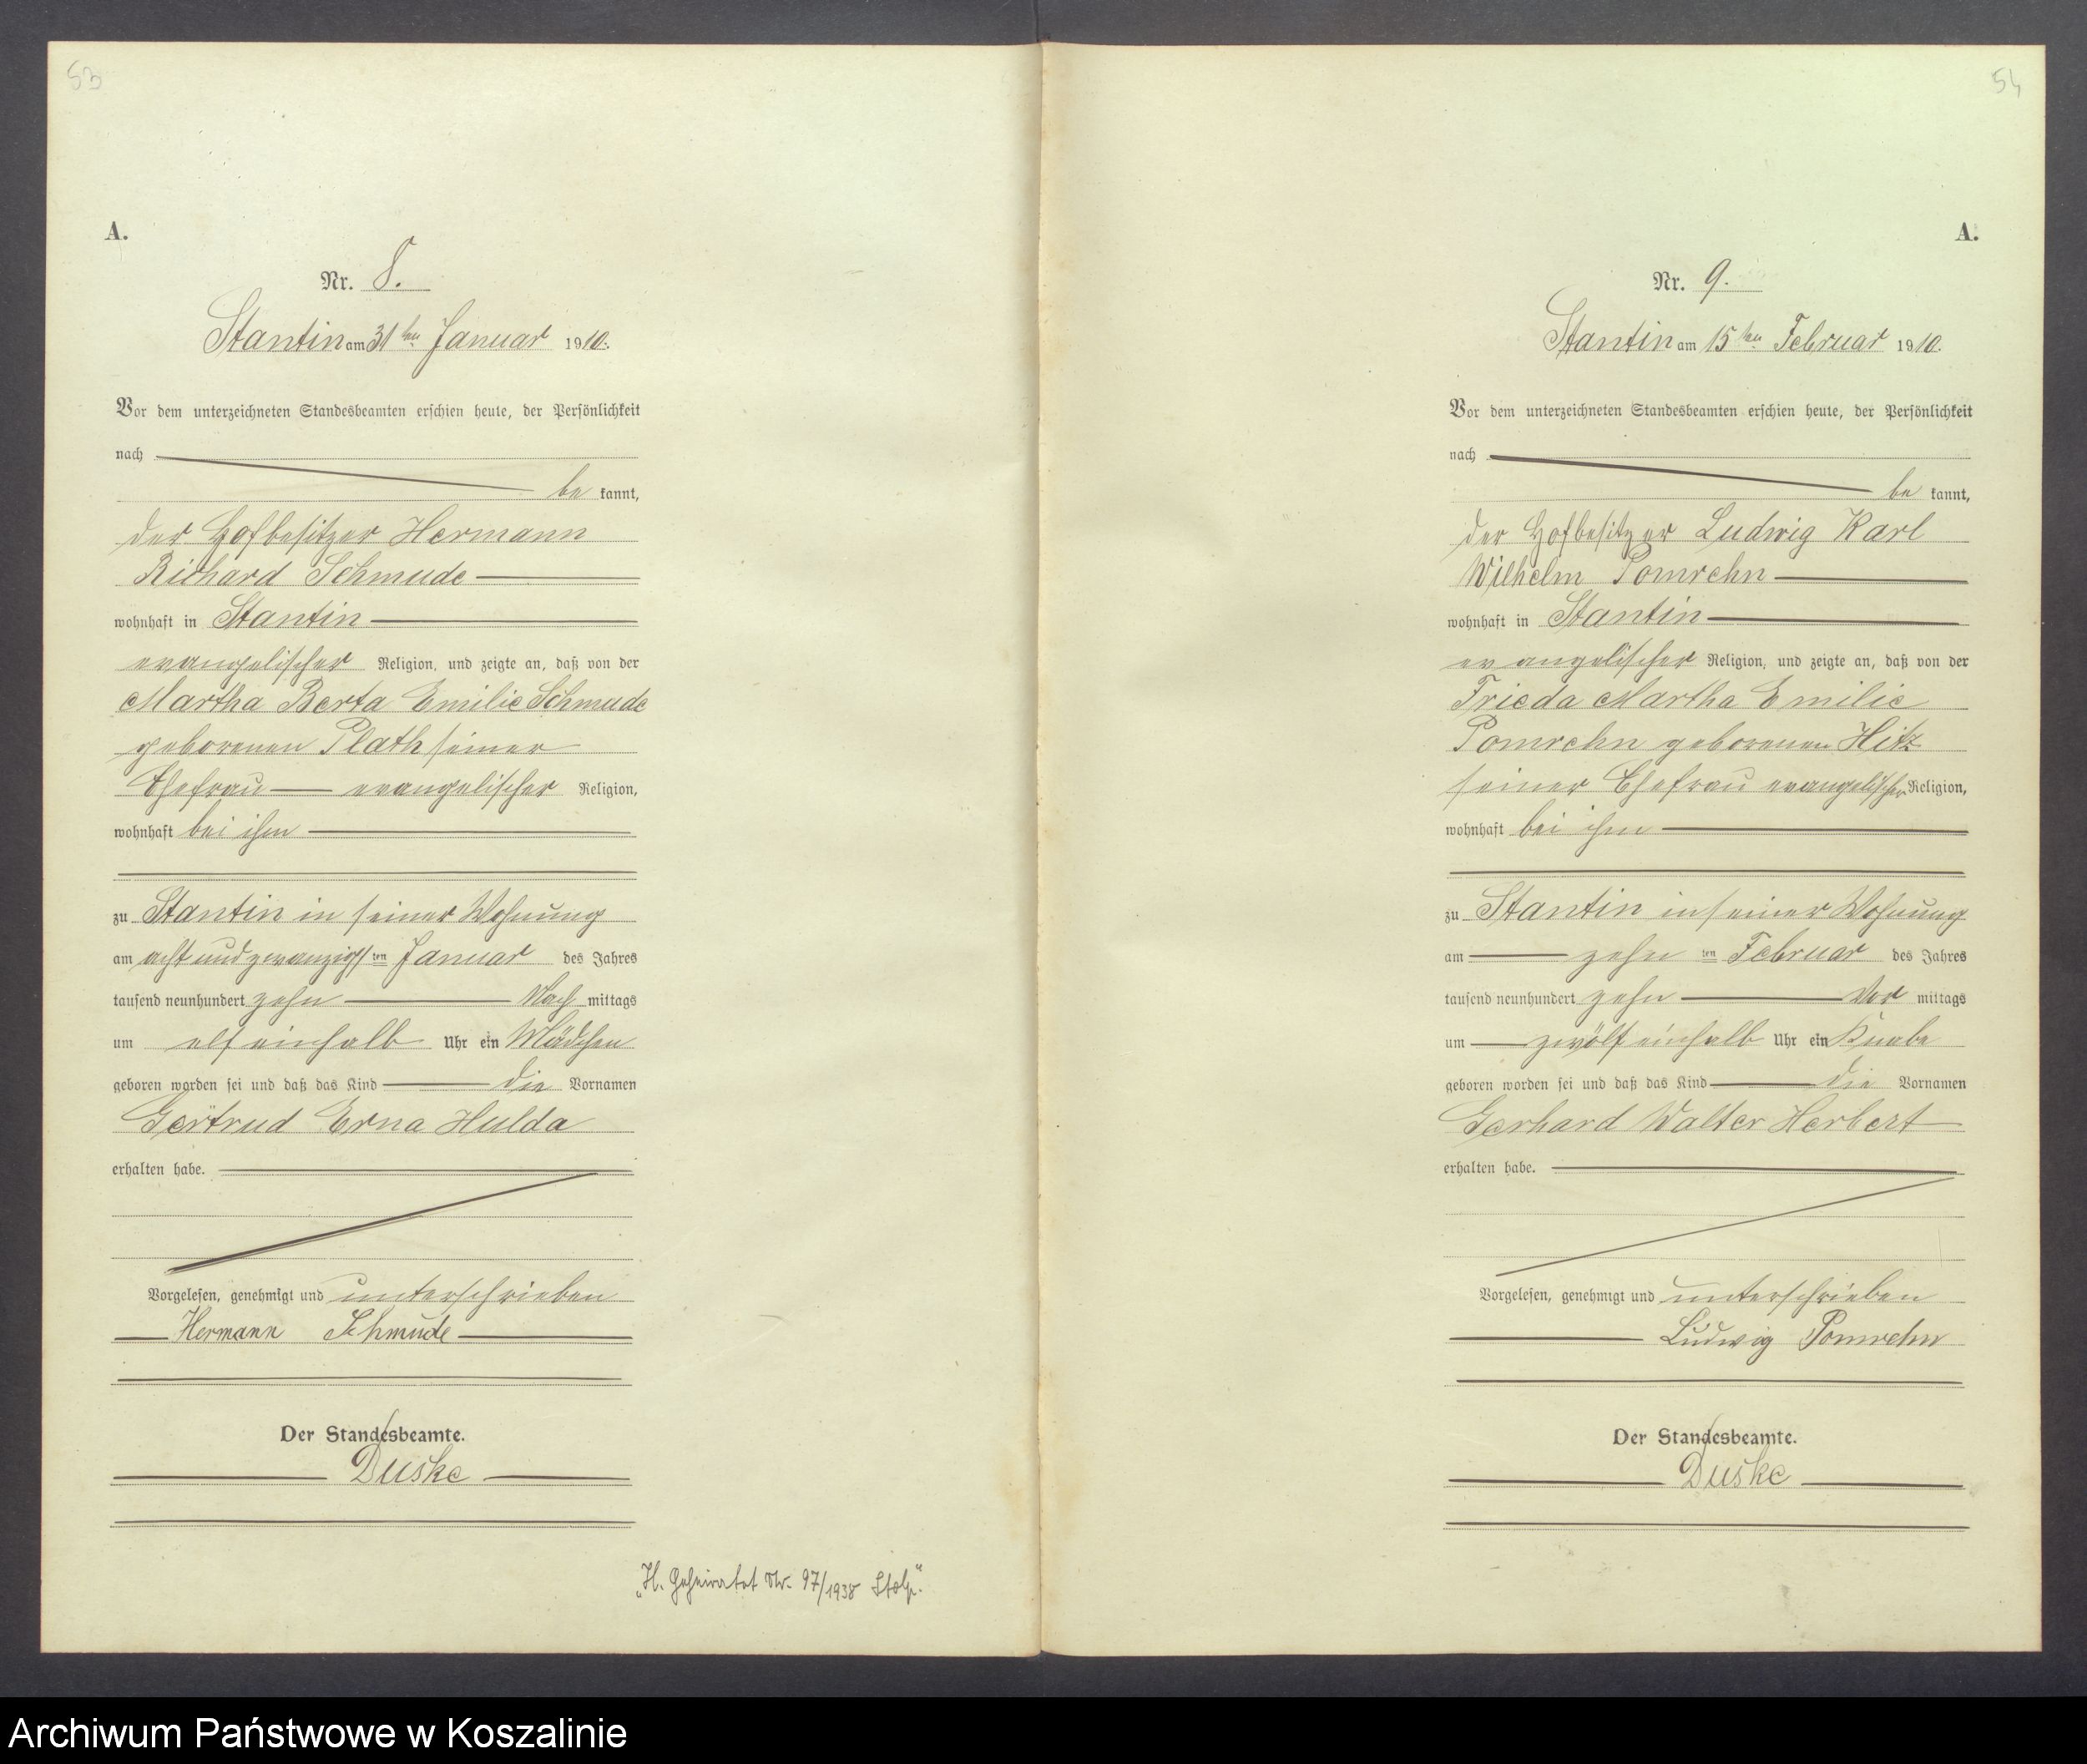 53
A.
Nr. 8.
Stantin am 31ten Januar 1910.
Vor dem unterzeichneten Standesbeamten erschien heute, der Persönlichkeit
nach
be kannt,
der Hofbesitzer Hermann
Richard Schmude
wohnhaft in Stantin
evangelischer Religion, und zeigte an, daß von der
Martha Berta Emilie Schmude
geborenen Plath seiner
Ehefrau evangelischer Religion,
wohnhaft bei ihm
zu Stantin in seiner Wohnung
am acht und zwanzigsten Januar des Jahres
tausend neunhundert zehn Nach mittags
um elf einhalb Uhr ein Mädchen
geboren worden sei und daß das Kind die Vornamen
Gertrud Erna Hulda
erhalten habe.
Vorgelesen, genehmigt und unterschrieben
Hermann Schmude
Der Standesbeamte.
Duske
„H. Geheiratet Nr. 97/1938 Stolp.“
54
A.
Nr. 9.
Stantin am 15ten Februar 1910.
Vor dem unterzeichneten Standesbeamten erschien heute, der Persönlichkeit
nach
be kannt,
der Hofbesitzer Ludwig Karl
Wilhelm Pomrehn
wohnhaft in Stantin
evangelischer Religion, und zeigte an, daß von der
Frieda Martha Emilie
Pomrehn geborenen Hitz
seiner Ehefrau evangelischer Religion,
wohnhaft bei ihm
zu Stantin in seiner Wohnung
am zehn ten Februar des Jahres
tausend neunhundert zehn Vor mittags
um zwölf einhalb Uhr ein Knabe
geboren worden sei und daß das Kind die Vornamen
Gerhard Walter Herbert
erhalten habe.
Vorgelesen, genehmigt und unterschrieben
Ludwig Pomrehn
Der Standesbeamte.
Duske
Archiwum Państwowe w Koszalinie